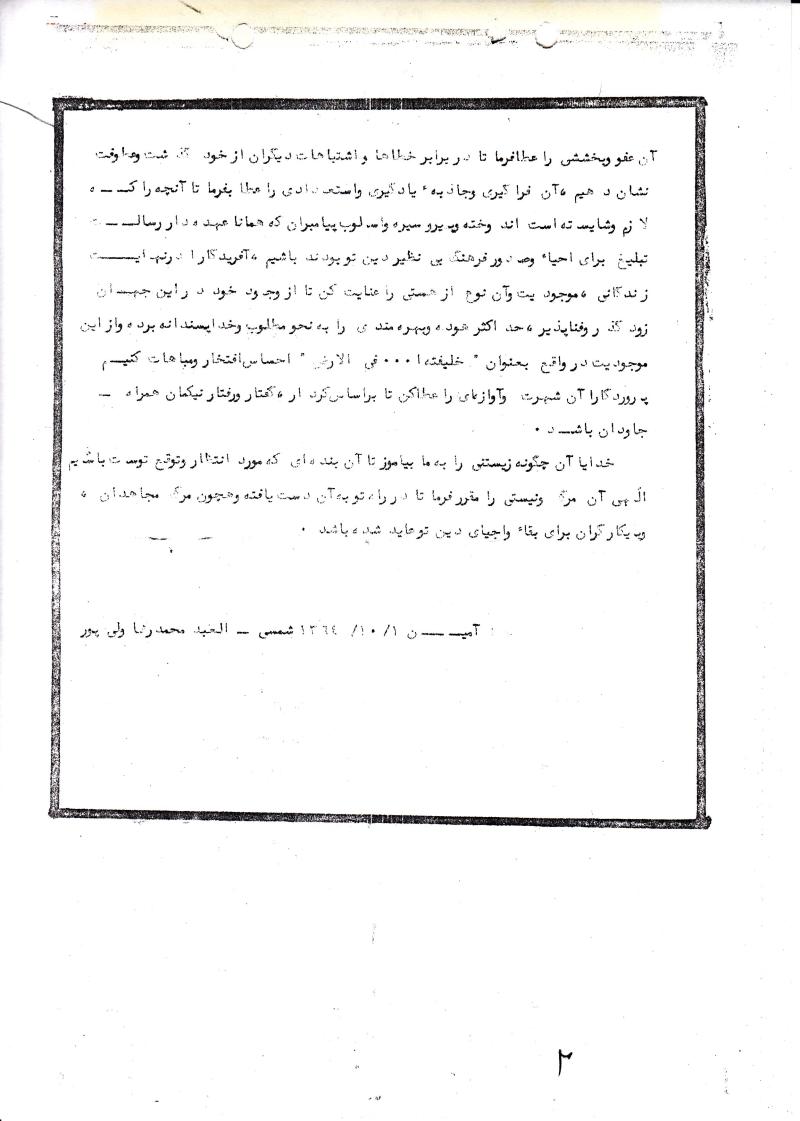 آن عفو وبخششی را عطافرما تا در برابر خطاها و اشتباهات دیگران از خود گذشت وعطوفت
نشان دهیم ،آن فراگیری وجاذبهٔ یادگیری واستعدادی را عطا بفرما تا آنچه را کــه
لازم وشایسته است اندوخته وپیرو سیره واسلوب پیامبران که همانا عهده دار رسالــت
تبلیغ برای احیاء وصدور فرهنگ بی نظیر دین تو بودند باشیم ،آفریدگارا درنهایــت
زندگانی ،موجودیت وآن نوع از هستی را عنایت کن تا از وجود خود در این جهــان
زودگذر وفناپذیر ،حداکثر هوده وبهره مندی را به نحو مطلوب وخداپسندانه برده واز این
موجودیت در واقع بعنوان " خلیفته ا... فی الارض " احساس افتخار ومباهات کنیــم
پروردگارا آن شهرت وآوازه‌ای را عطاکن تا براساس کردار ،گفتار ورفتار نیکمان همراه ــ
جاودان باشــد .
خدایا آن چگونه زیستنی را به ما بیاموز تا آن بنده ای که مورد انتظار وتوقع توست باشیم
الهی آن مرگ ونیستی را مقرر فرما تا در راه تو به آن دست یافته وهمچون مرگ مجاهدان ،
وپیکارگران برای بقاء واحیای دین تو عاید شده باشد .
آمیــــن ۱/ ۱۰/ ۱۳٦٤ شمسی ــ العبد محمدرضا ولی پور
۲